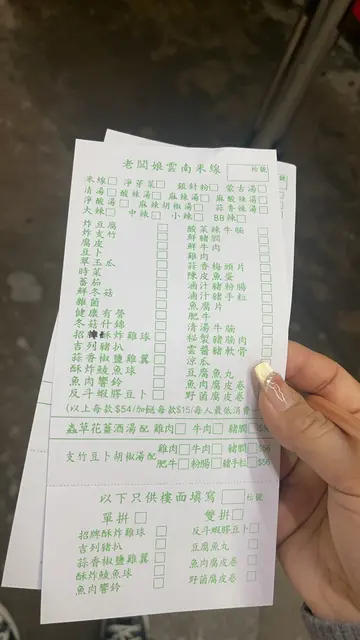 老闆娘雲南米線 枱號
米線□ 淨菜□ 銀針粉□ 蒙古湯□
清湯□ 酸辣湯□ 麻辣湯□ 麻酸辣湯□
淨酸湯□ 麻辣胡椒湯□ 蒜香辣湯□
大辣□ 中辣□ 小辣□ BB辣□
炸豆腐□ 酸菜辣牛腩□
炸支竹□ 鮮豬膶□
腐皮□ 鮮牛肉□
豆卜□ 雞肉□
翠玉瓜□ 蒜香梅頭片□
時菜□ 陳皮魚蛋□
蕃茄□ 滷汁豬粉腸□
鮮冬菇□ 滷汁豬手粒□
雜菌□ 魚腐片□
健康有營□ 肥牛□
冬菇什錦□ 清湯牛腩□
招牌酥炸雞球□ 秘製豬腩肉□
吉列豬扒□ 雲醬豬軟骨□
蒜香椒鹽雞翼□ 涼瓜□
酥炸鯪魚球□ 豆腐魚丸□
魚肉響鈴□ 魚肉腐皮卷□
反斗蝦膠豆卜□ 野菌腐皮卷□
(以上每款$54/加餸每款$15/每人最低消費
蟲草花蓍酒湯配 雞肉□ 牛肉□ 豬膶□ $56
支竹豆卜胡椒湯配 雞肉□ 牛肉□ 豬膶□
肥牛□ 粉腸□ 豬手粒□ $56
以下只供樓面填寫 枱號
單拼□ 雙拼□
招牌酥炸雞球□ 反斗蝦膠豆卜□
吉列豬扒□ 豆腐魚丸□
蒜香椒鹽雞翼□ 魚肉腐皮卷□
酥炸鯪魚球□ 野菌腐皮卷□
魚肉響鈴□